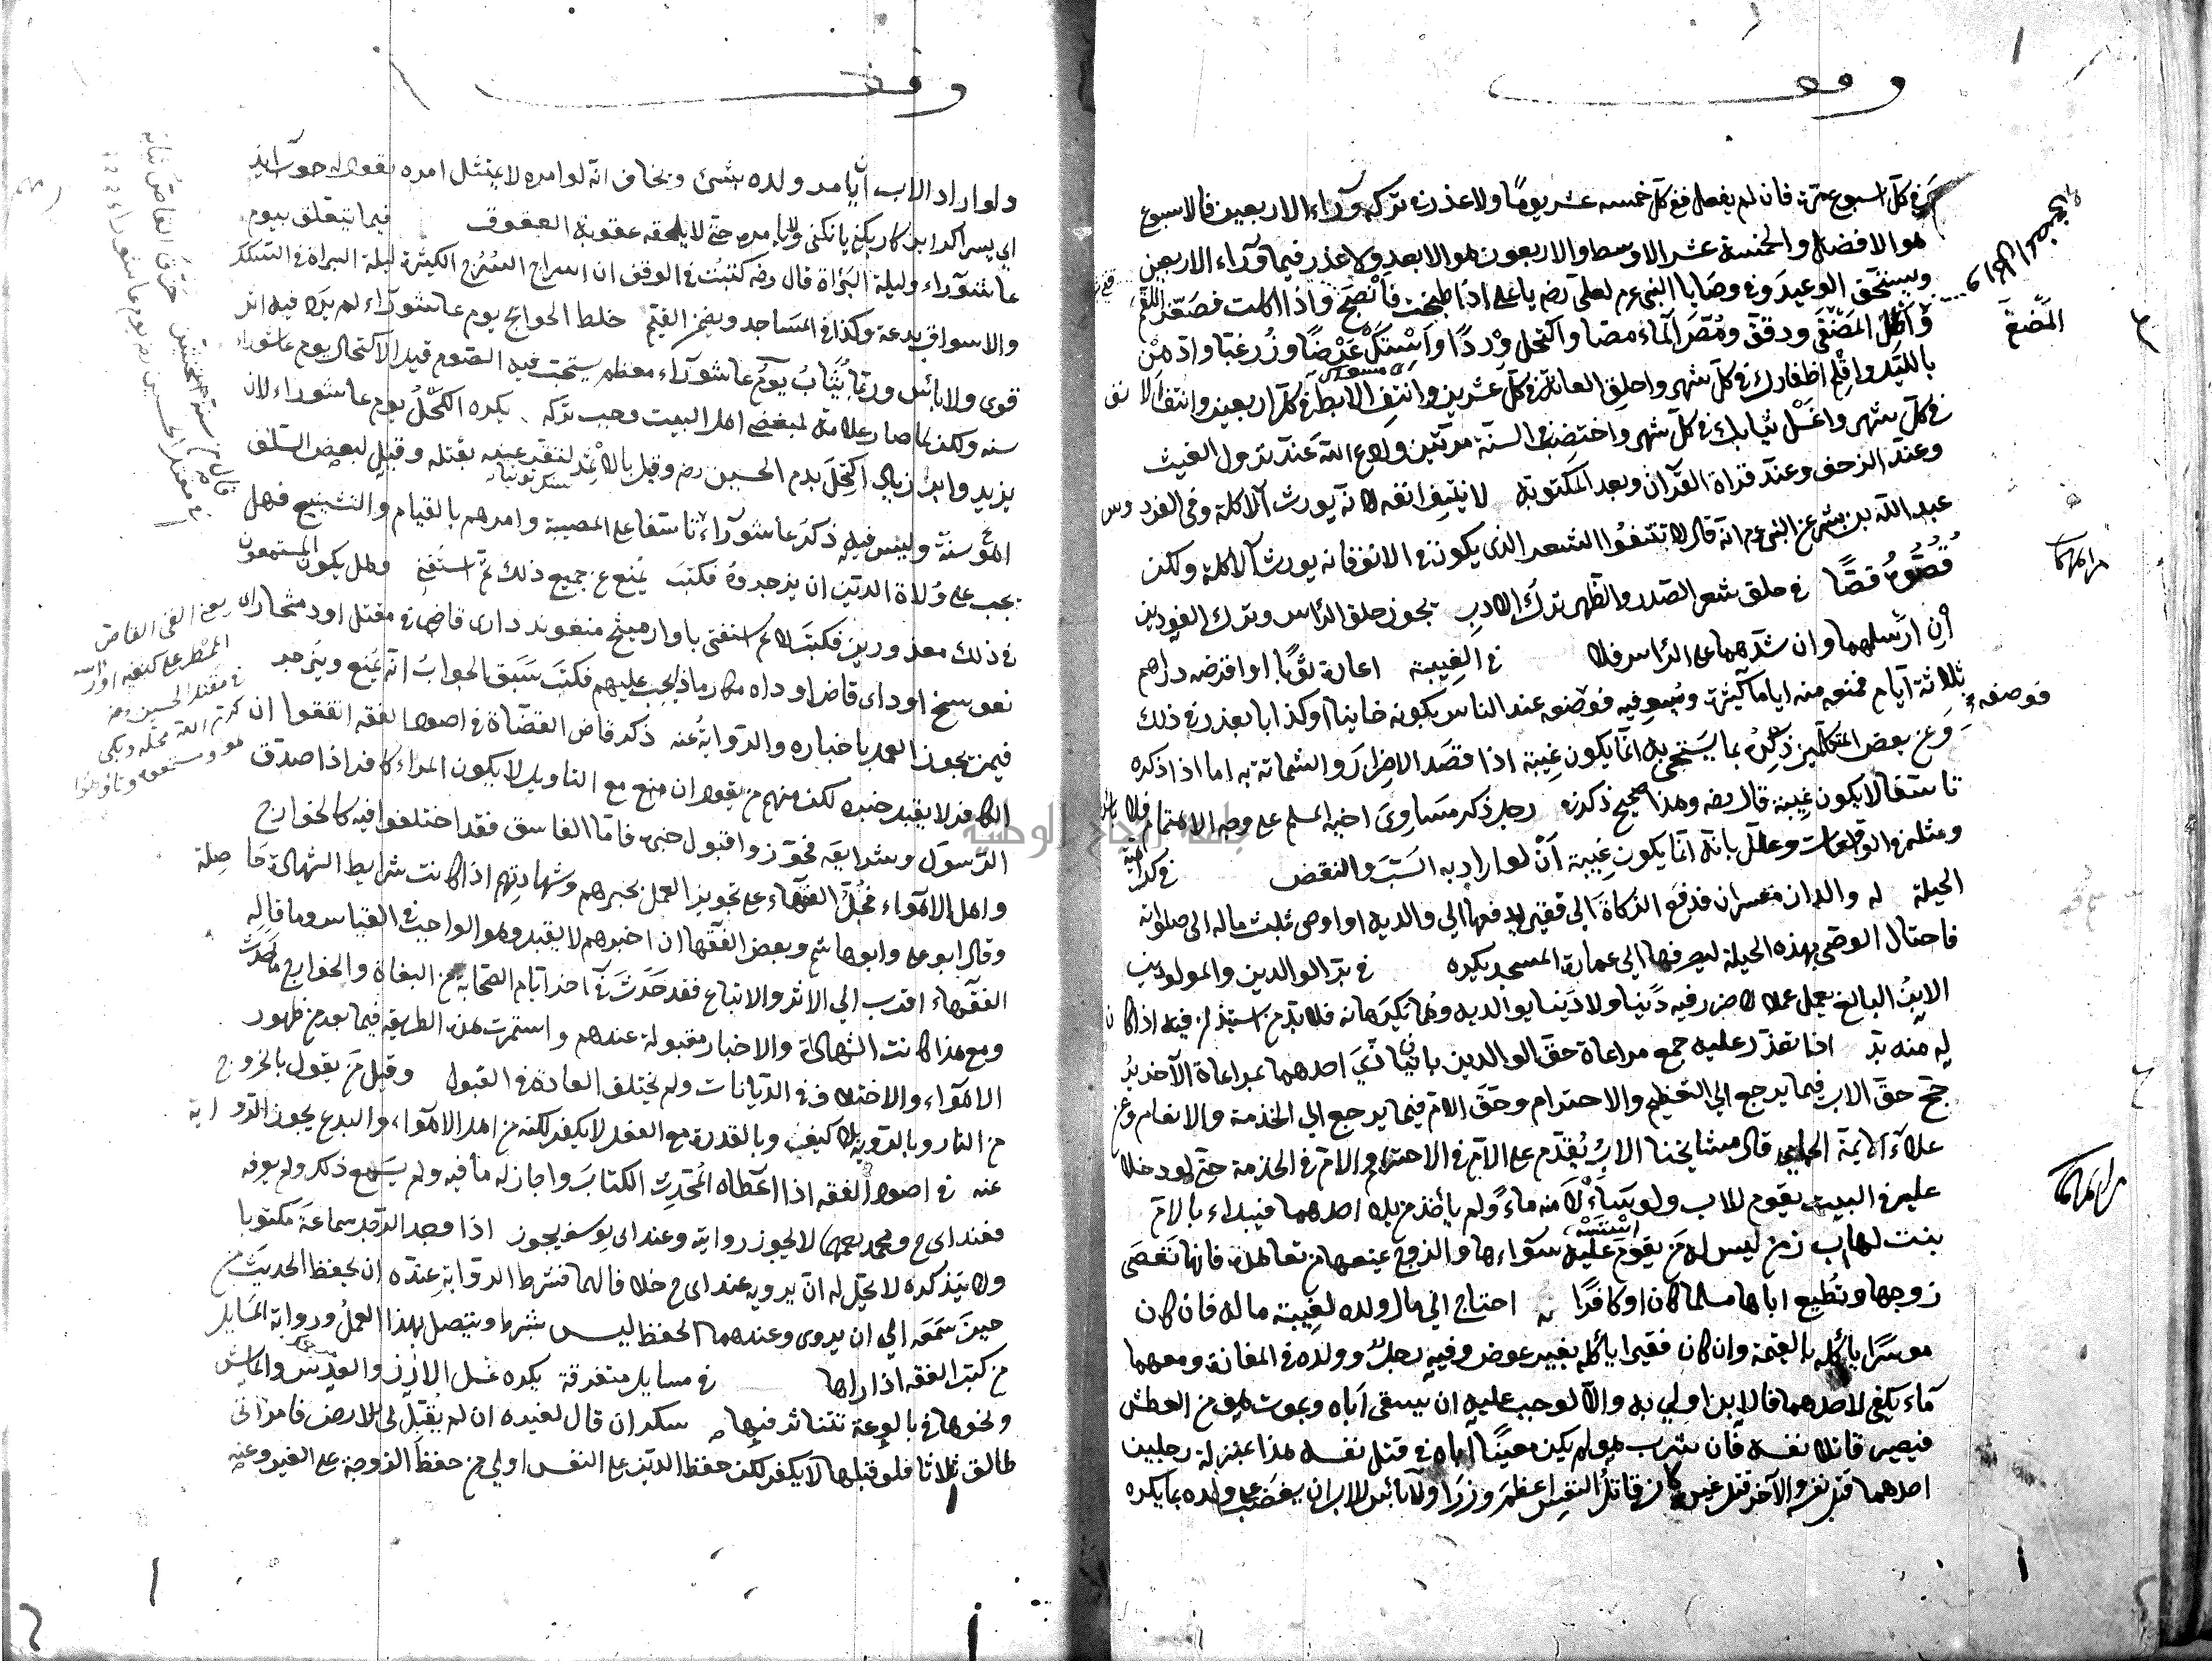 وقف
في كل اسبوع مرّة فان لم يفعل ففي كل خمسه عشر يومًا ولا عذر في تركه وراء الاربعين فالاسبوع
هو الافضل والخمسة عشر الاوسط والاربعون هو الابعد ولا عذر فيما وراء الاربعين
ويستحق الوعيد وفي وصايا النبي عم لعلي رضه يا علي اذا طبخت فأنضج واذا اكلت فصغّر اللقم
المَضْغَ
واطل المضغ ودقق ومُصّ الماء مصا واكتحل وِرْدًا واسْتَكْ عَرْضًا وزُر غبّا وادهن
باللّيل واقلم اظفارك في كل شهر واحلق العانة في كل عشرين وانتف الابط في كل اربعين وانتف الانف
في كل شهر واغسل ثيابك في كل شهر واختضب في السنة مرتين وادع الله عند نزول الغيث
وعند الزحف وعند قراة القرآن وبعد المكتوبة لا ينتف انفه لانه يورث الاكلة وفي الفردوس
عبد الله بن بشر عن النبي عم انه قال لا تنتفوا الشعر الذي يكون في الانف فانه يورث الاكلة ولكن
قُصُّوهُ قصًّا في حلق شعر الصدر والظهر ترك الادب يجوز حلق الراس وترك الفودين
اِن ارسلهما وان شدّهما على الراس فلا في الغيبة اعاره ثوبًا او اقرضه دراهم
ثلاثة ايام فمنعه منه اياما كثيرة وسوّفيه فوصفه عند الناس بكونه خاينا او كذابا يعذر في ذلك
فوصفه
وعن بعض المتكلمين ذِكرُهُ بما يستحق به انما يكون غيبة اذا قصد الاضرار والشماتة به اما اذا ذكره
تاسفا لا يكون غيبة قال رضه وهذا صحيح ذكره رجل ذكر مَسَاوِيَ اخيه المسلم على وجه الاهتمام فلا باس
ومثله في الواقعات وعلّل بانه انما يكون غيبة اَنْ لو اراد به السَّبّ والنقص في كراهية
الحيلة له والدان معسران فدفع الزكاة الي فقير ليدفعها الي والديه او اوصى بثلث ماله الى صلواته
فاحتال الوصي بهذه الحيلة ليصرفها الي عمارة المسجد يكره في برّ الوالدين والمولودين
الابن البالغ يعمل عملا لا ضرر فيه دينا ولا دنيا بوالديه وهما يكرهانه فلا بد من استيذان فيه اذا كان
له منه بد اذا تعذر عليه جمع مراعاة حق الوالدين بان يتاذّي احدهما بمراعاة الآخر ير
جّح حق الاب فيما يرجع الي التعظيم والاحترام وحق الام فيما يرجع الي الخدمة والانعام وعن
علاء الايمة الحمامي قال مشايخنا الاب يُقدّم على الام في الاحترام والام في الخدمة حتى لو دخلا
عليه في البيت يقوم للاب ولو سألا منه ماءً ولم يأخذ من يده احدهما فيبداء بالام
بنت لها اب زمن ليس له من يقوم عليه سواءها والزوج يمنعها من تعاهده فانها تعصى
زوجها وتُطيع اباها مسلما كان او كافرًا احتاج الي مال ولده لغيبة ماله فان كان
موسرًا يأكله بالقيمة وان كان فقيرا يأكله بغير عوض وفيه رجل وولده في المفازة ومعهما
مآء يكفي لاحدهما فالابن اولي به والا لوجب عليه ان يسقى اَباه ويموت هو من العطش
فيصير قاتلا نفسه فان شرب هو لم يكن معينًا اباه في قتل نفسه هذا بمنزلة رجلين
احدهما قتل نفسه والآخر قتل غيره كان قاتل النفس اعظم وزرًا ولا بأس للاب ان يغضب على ولده بما يكره
وقف
ولو اراد الاب ان يأمر ولده بشئ ويخاف انه لو امره لا يمتثل امره يقول له خوب آيد
اي پسر اگر اين كار بكني يا نكني ولا يأمره حتى لا يلحقه عقوبة العقوق فيما يتعلق بيوم
عاشوراء وليلة البراة قال رضه كتبتُ في الوقف ان اسراج السُّرُج الكثيرة ليلة البراة في السكك
والاسواق بدعة وكذا في المساجد ويضمن القيّم خلط الحوائج يوم عاشوراء لم يرد فيه اثر
قوي ولا بأس وربّما يُثابُ يومُ عاشورآء معظم يستحب فيه الصوم قيل الاكتحال يوم عاشوراء
سنه ولكن لما صار علامة لمبغضي اهل البيت وجب تركه يكره الكُحْلُ يوم عاشوراء لان
يزيد وابن زياد اكتحل بدم الحسين رضه وقيل بالاثمد لتقر عينه بقتله وقيل لبعض السلف
المؤسنة وليس فيه ذكر عاشوراء تاسفا على المصيبة وامرهم بالقيام والتشنيع فهل
يجب على وُلاة الدين ان يزجروهُ فكتب يُمنع عن جميع ذلك ثمّ استُفتي وهل يكون المستمعون
في ذلك معذورين فكتب لا ثم استفتي
فيمن يجوز العمل باخباره والرواية عنه ذكر قاضي القضاة في اصول الفقه اتفقوا ان
الكافر لا يقبل خبره لكن منهم من يقول ان منع مع التاويل لا يكون المراء كافرا اذا صدق
الرسول وشرايعه فجوّزوا قبول خبره فاما الفاسق فقد اختلفوا فيه كالخوارج
واهل الاهواء فجُلّ الفقهاء على تجويز العمل بخبرهم وشهادتهم اذا كانت شرايط الشهادة حاصلة
وقال ابو علي وابو هاشم وبعض الفقها ان اخبروهم لا يقبل وهو الواجب في القياس وما قاله
الفقهاء اقرب الي الاثر والاتباع فقد حَدَثَ في آخر ايام الصحابة من البغاة والخوارج ما حدث
ومع هذا كانت الشهادة والاخبار مقبولة عندهم واستمرت هذه الطريقه فيما بعد من ظهور
الاهواء والاختلاف في الديانات ولم يختلف العادة في القبول وقيل من يقول بالخروج
من النار وبالرؤية بلا كيف وبالقدرة مع الفعل لا يكفر لكنه من اهل الاهواء والبدع يجوز الرواية
عنه في اصول الفقه اذا اعطاه المُحدّث الكتابَ واجاز له ما فيه ولم يسمع ذلك ولم يعرفه
فعند ابي ح ومحمد رحمهما لا يجوز روايته وعند ابي يوسف يجوز اذا وجد الرجل سماعَهُ مكتوبا
ولا يتذكره لا يحل له ان يرويه عند ابي ح خلافا لهما فشرط الرواية عنده ان يحفظ الحديث من
حين سمعه الي ان يروي وعندهما الحفظ ليس شرط ويتصل بهذا العمل ورواية المسايل
من كتب الفقه اذا راها في مسايل متفرقة يكره غسل الارز والعدس والماش
ونحوها في بالوعة تتناثر فيها سكران قال لغيره ان لم يُقبّل لي الارض فامراتي
طالق ثلاثا فلو قبلها لا يكفر لكن حفظ الدين على النفس اولي من حفظ الزوجة على الغير وعنه
جامعة النجاح الوطنية